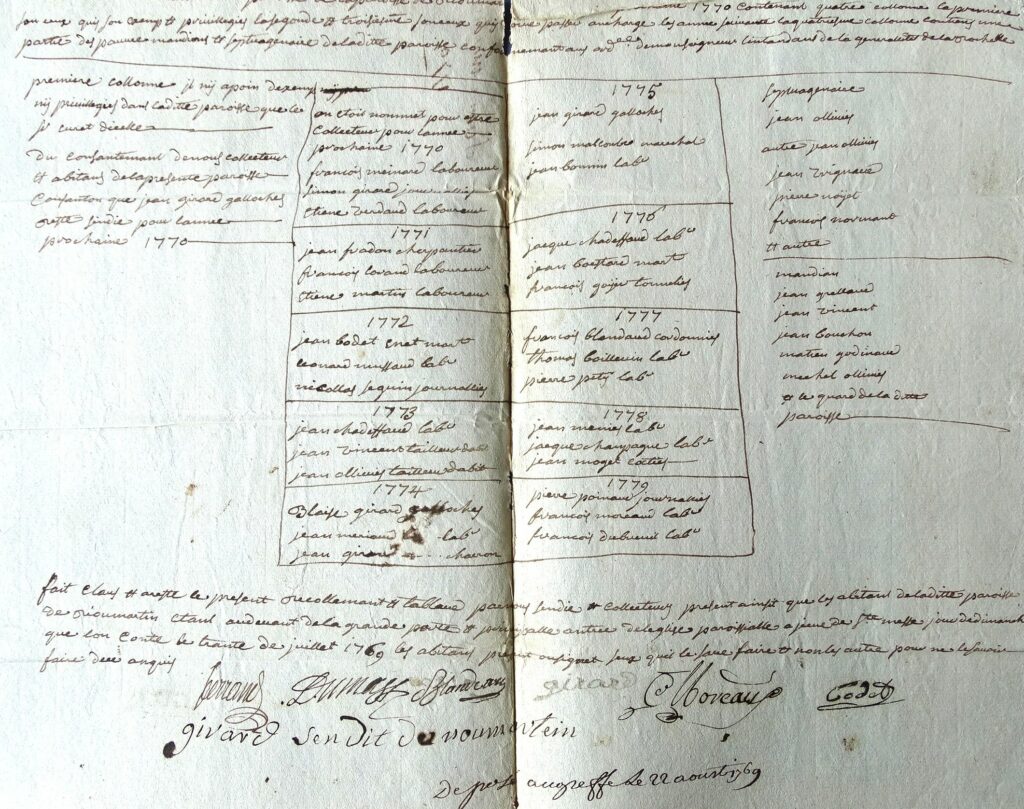 son ceux qui son exempt et privilegies la segonde et troisiesme son ceux qui
doive passer en charge les anne suivante la quatriesme collomne contiens une
partie des pauvre mandians et septuagenaire de laditte paroisse conformemant aux ord.ces de monseigneur lintandans de la generallité de la rochelle
1770 contenant quatre collomne la premiere
premiere collonne il nij a poin dexemp
nij privillegies dans laditte paroisse que le
sr curet dicelle
Du consantement de nous collecteur
et abitans de la presente paroisse
Consanton que jean girard galloches
reste sindic pour lannee
prochaine 1770
on etoit nommet pour estre
Collecteur pour lannee
prochaine 1770
francois meinard laboureur
simon girard journallies
etiene verdaud laboureur
1771
jean fradon charpantier
francois lavaud laboureur
etiene martin laboureur
1772
jean bodet enet mart
leonard mussaud labr
nicollas seguin journallies
1773
jean chadeffaud labr
jean vincent tailleur dabit
jean ollivies tailleur dabit
1774
Blaise girard galloches
jean meriaud labr
jean girard charon
1775
jean girard galloches
simon malcombre marechal
jean bounin labr
1776
jacque chadeffaud labr
jean boestard mart
francois goyer tonnelies
1777
francois blandaud cordonnies
thomas boilleuin labr
pierre pety labr
1778
jean menies labr
jacque champagne labr
jean moget coties
1779
pierre poinaud journallies
francois moreaud labr
francois dubreuil labr
septuagenaire
jean ollivies
autre jean ollivies
jean vrignaud
pierre noyet
francois normant
et autre
mandian
jean grellaud
jean vincent
jean bouchon
matieu godinaud
mechel ollivies
et le quard de la ditte
paroisse
fait claus et areste le present recollemant et tablaud par nous sendic et collecteurs present ainsit que les abitans de laditte paroisse
de rioumartin etant audevant de la grande porte et principalle antree de leglise paroissialle a jsue de ste messe jour de dimanche
que lon conte le trante de juillet 1769 les abitans present onsignet seux qui le save faire et non les autre pour ne le savoir
faire dece anquis
ferrand Dumas Blandeau girard Moreau Bodet
girard sendit du rioumartein
Depozé au greffe le 22 aoust 1769